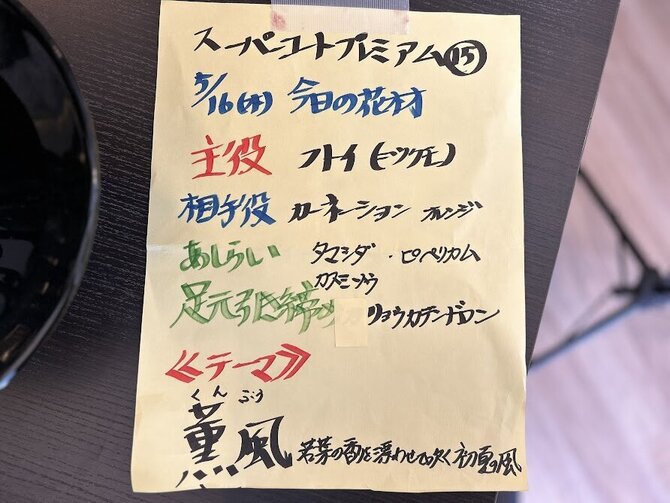 スーパーコートプレミアム⑮
5/16(木) 今日の花材
主役 フトイ(ミツケモ)
相手役 カーネーション オレンジ
あしらい タマシダ・ヒペリカム
カスミソウ
足元引き締め リョウカデンドロン
≪テーマ≫
くんぷう
薫風 若葉の香を漂わせて吹く初夏の風